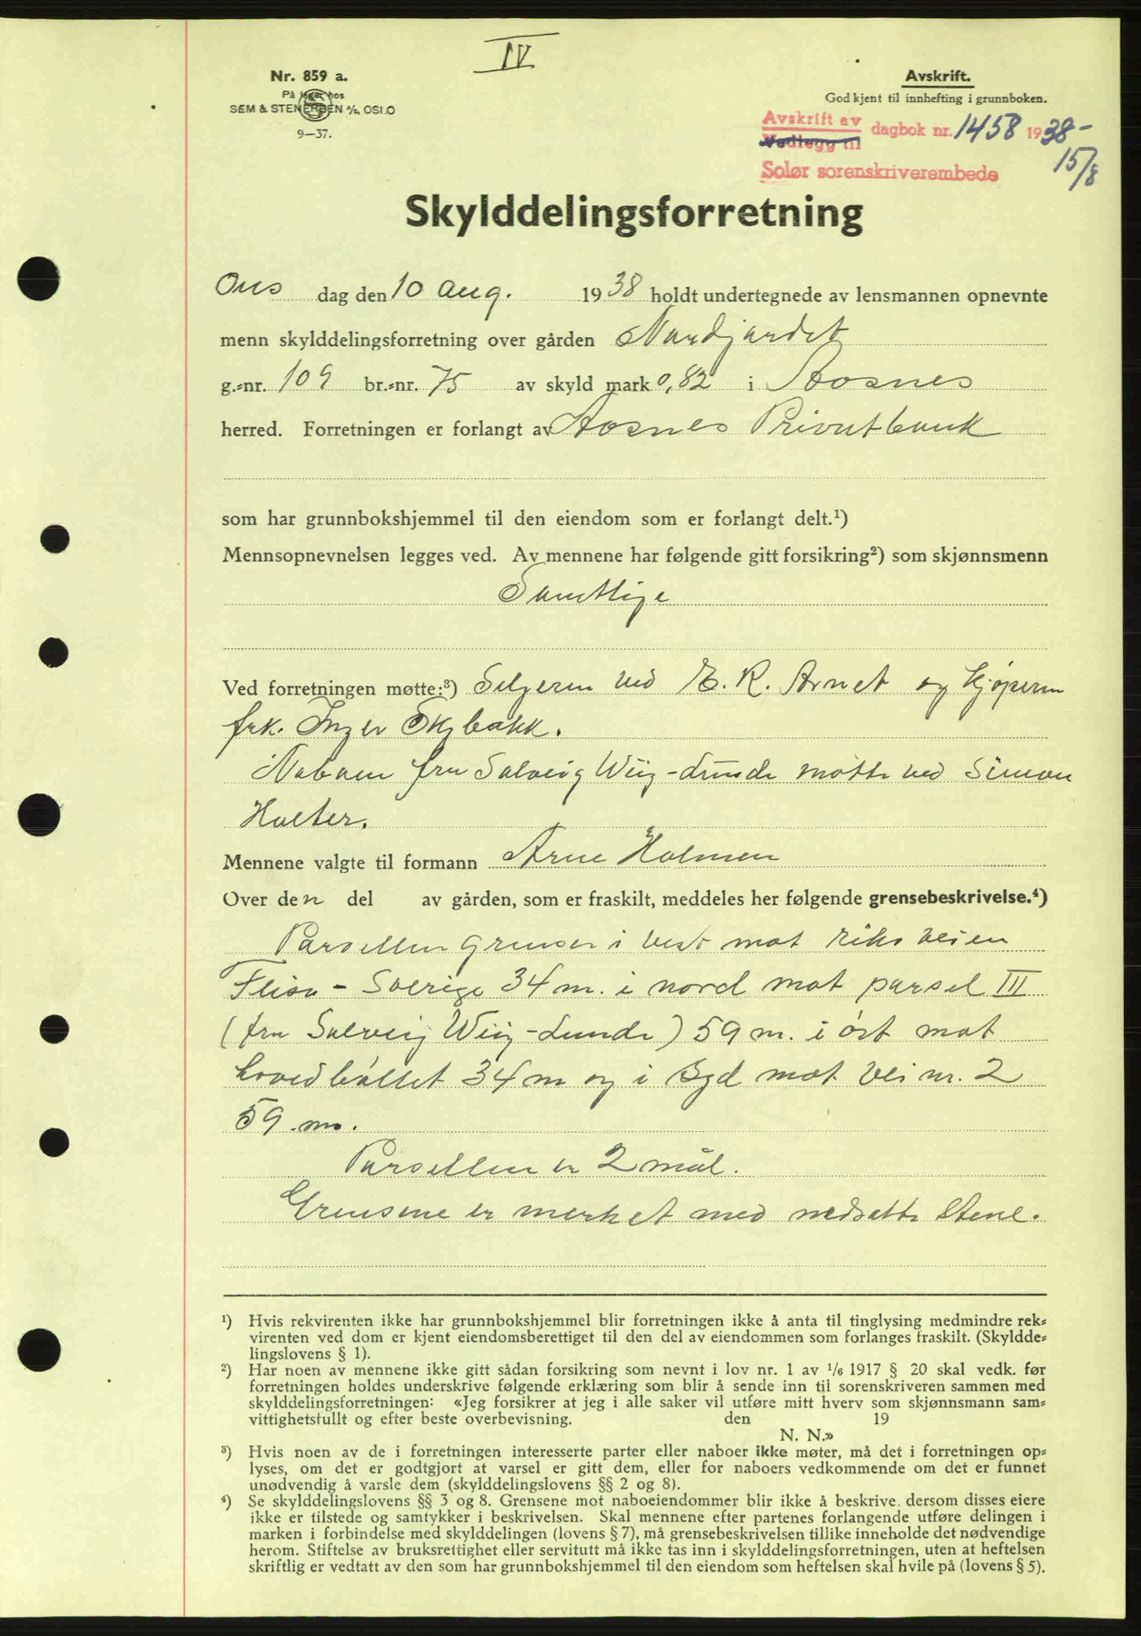 IV
Nr. 859 a.
På lager hos
SEM & STENERSEN A/S, OSLO
9—37.
Avskrift.
Godkjent til innhefting i grunnboken.
Avskrift av
Vedlegg til
dagbok nr. 1458 1938-
15/8
Solør sorenskriverembede
Skylddelingsforretning
Ons dag den 10 aug. 1938 holdt undertegnede av lensmannen opnevnte
menn skylddelingsforretning over gården Nordjordet
g.=nr. 109 br.=nr. 75 av skyld mark 0,82 i Åosnes
herred. Forretningen er forlangt av Åosnes Privatbank
som har grunnbokshjemmel til den eiendom som er forlangt delt.¹)
Mennsopnevnelsen legges ved. Av mennene har følgende gitt forsikring²) som skjønnsmenn
Samtlige
Ved forretningen møtte:³) Selgeren ved E. R. Arnet og kjøperen
frk. Inger Skybakk.
Naboen fru Solveig Wiig-Lunde møtte ved Simon
Holter.
Mennene valgte til formann Arne Holmen
Over den del av gården, som er fraskilt, meddeles her følgende grensebeskrivelse.⁴)
Parsellen grenser i vest mot riksveien
Flisa - Sverige 34 m. i nord mot parsel III
(fru Solveig Wiig-Lunde) 59 m. i øst mot
hovedbøllet 34 m og i syd mot vei nr. 2
59 m.
Parsellen er 2 mål.
Grensene er merket med nedsatte stene.
¹) Hvis rekvirenten ikke har grunnbokshjemmel blir forretningen ikke å anta til tinglysing medmindre rek=
virenten ved dom er kjent eiendomsberettiget til den del av eiendommen som forlanges fraskilt. (Skyldde=
lingslovens § 1).
²) Har noen av mennene ikke gitt sådan forsikring som nevnt i lov nr. 1 av 1/6 1917 § 20 skal vedk. før
forretningen holdes underskrive følgende erklæring som blir å sende inn til sorenskriveren sammen med
skylddelingsforretningen: «Jeg forsikrer at jeg i alle saker vil utføre mitt hverv som skjønnsmann sam=
vittighetsfullt og efter beste overbevisning. den 19
N. N.»
³) Hvis noen av de i forretningen interesserte parter eller naboer ikke møter, må det i forretningen op=
lyses, om det er godtgjort at varsel er gitt dem, eller for naboers vedkommende om det er funnet
unødvendig å varsle dem (skylddelingslovens §§ 2 og 8).
⁴) Se skylddelingslovens §§ 3 og 8. Grensene mot naboeiendommer blir ikke å beskrive, dersom disses eiere
ikke er tilstede og samtykker i beskrivelsen. Skal mennene efter partenes forlangende utføre delingen i
marken i forbindelse med skylddelingen (lovens § 7), må grensebeskrivelsen tillike inneholde det nødvendige
herom. Stiftelse av bruksrettighet eller servitutt må ikke tas inn i skylddelingsforretningen, uten at heftelsen
skriftlig er vedtatt av den som har grunnbokshjemmel til den eiendom som heftelsen skal hvile på (lovens § 5).